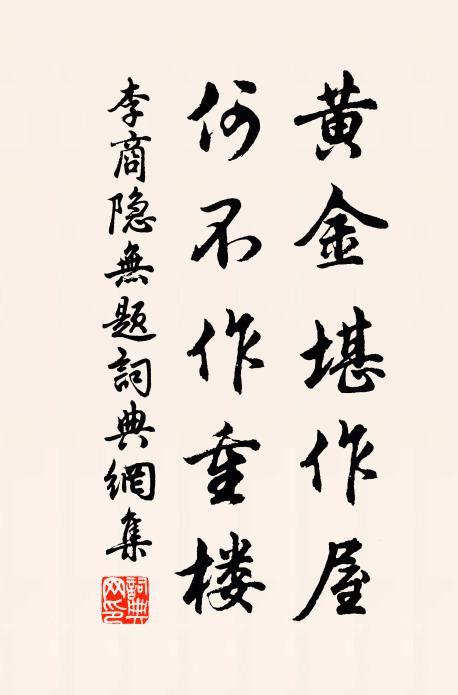 黄金堪作屋
何不作重楼
李商隐無题詞典網集
詞典網印